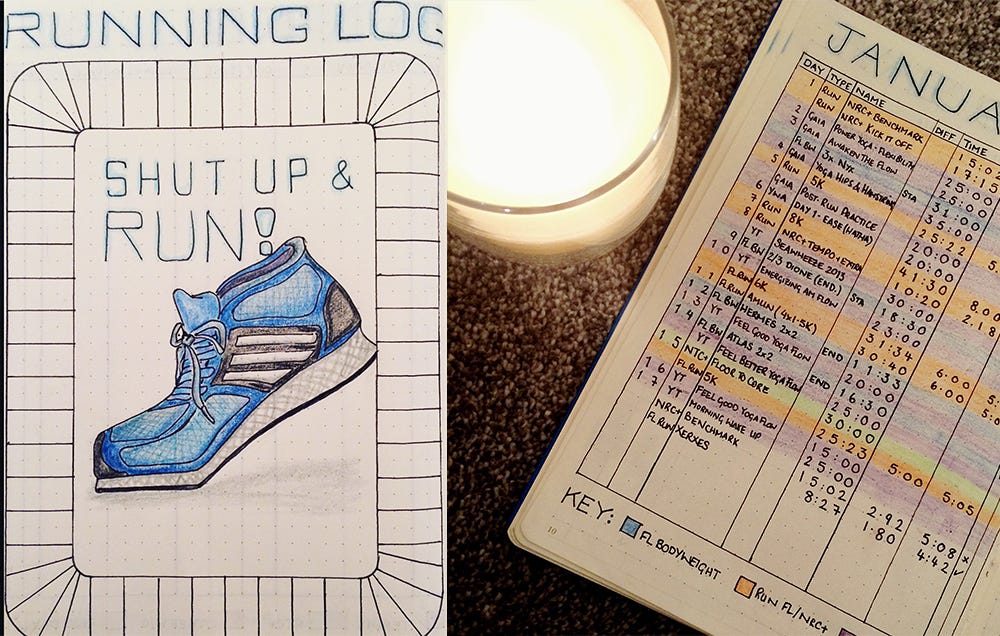 RUNNING LOG
SHUT UP &
RUN!
JANUA
DAY TYPE NAME DIFF TIME
1 RUN NRC+ BENCHMARK 15:02
RUN NRC+ KICK IT OFF 17:15
2 GAIA POWER YOGA - FLEXIBILITY 25:00
3 GAIA AWAKEN THE FLOW 25:00
FL BW 3x NYX STA 31:00
4 GAIA YOGA HIPS & 35:00
5 RUN 5K 25:22 5.
GAIA POST RUN PRACTICE 20:00
6 DAY 1 - EASE (HATHA) 20:00
7 RUN 8K 41:30 8.00
8 RUN NRC+ TEMPO + EXTRA 10:20 2.18
YT SEANWEEZE 2013 30:00
9 FL BW 2/3 DIONE (END.) STA 18:30
10 YT ENERGIZING AM FLOW 23:00
11 FL RUN 6K 31:34 6:00 5:
12 FL RUN AMUN (4x1.5K) 30:40 6:00 5:0
13 FL BW HERMES 2x2 END 11:33
YT FEEL GOOD YOGA FLOW 20:00
14 FL BW ATLAS 2x2 END 16:30
YT FEEL BETTER YOGA FLOW 25:00
15 NTC+ FLOOR TO CORE 30:00
16 FL RUN 5K 25:23 5:00 5:05
YT FEEL GOOD YOGA FLOW 15:00
17 YT MORNING WAKE UP 25:00
NRC+ BENCHMARK 15:02 2.92 5:08 x
FL RUN XERXES 8:27 1:80 4:42 ✓
10
KEY: FL BODYWEIGHT RUN FL/NRC+